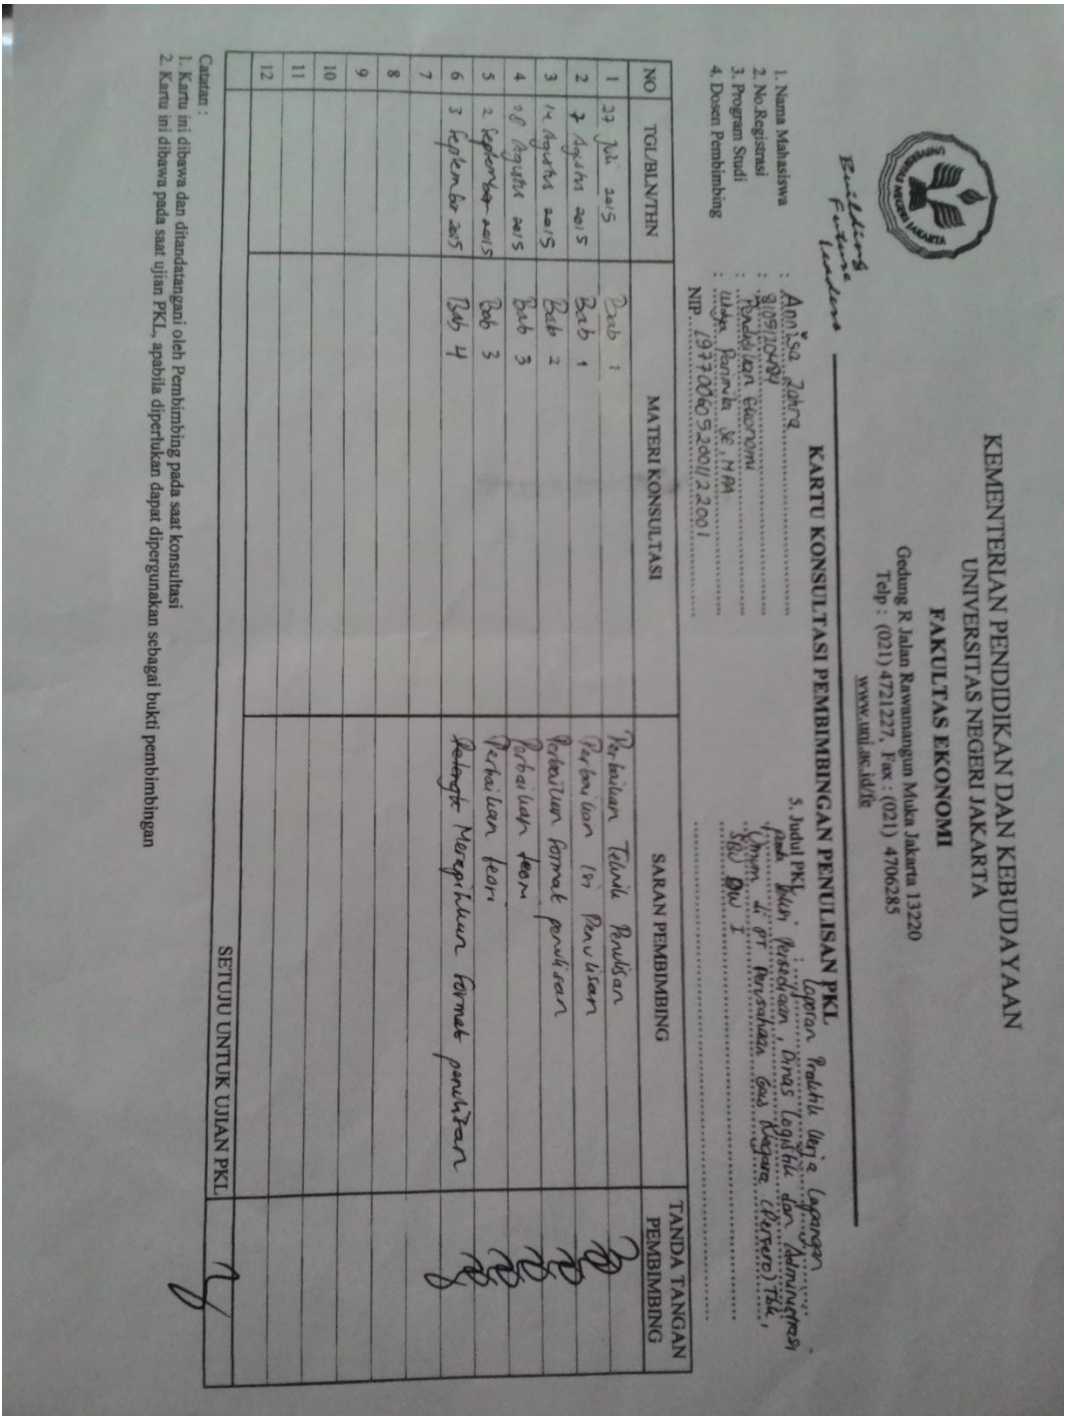 KEMENTERIAN PENDIDIKAN DAN KEBUDAYAAN
UNIVERSITAS NEGERI JAKARTA
FAKULTAS EKONOMI
Gedung R Jalan Rawamangun Muka Jakarta 13220
Telp : (021) 4721227, Fax : (021) 4706285
www.unj.ac.id/fe
UNIVERSITAS NEGERI JAKARTA
Building
Future
Leaders
KARTU KONSULTASI PEMBIMBINGAN PENULISAN PKL
1. Nama Mahasiswa : Annisa Zahra
2. No.Registrasi :
3. Program Studi : Pendidikan Ekonomi
4. Dosen Pembimbing : Widya Parimita SE, MPA
NIP. 197700605200112 2001
5. Judul PKL : Laporan Praktik Kerja Lapangan
Pada Persediaan, Dinas Logistik dan Administrasi
Umum di PT Perusahaan Gas Negara (Persero) Tbk,
SBU DW I
NO TGL/BLN/THN MATERI KONSULTASI SARAN PEMBIMBING TANDA TANGAN PEMBIMBING
1 27 Juli 2015 Bab 1 Perbaikan Teknik Penulisan
2 7 Agustus 2015 Bab 1 Perbaikan Isi Penulisan
3 14 Agustus 2015 Bab 2 Perbaikan format penulisan
4 28 Agustus 2015 Bab 3 Perbaikan teori
5 2 September 2015 Bab 3 Perbaikan teori
6 3 September 2015 Bab 4 Merapihkan format penulisan
7
8
9
10
11
12
SETUJU UNTUK UJIAN PKL
Catatan :
1. Kartu ini dibawa dan ditandatangani oleh Pembimbing pada saat konsultasi
2. Kartu ini dibawa pada saat ujian PKL, apabila diperlukan dapat dipergunakan sebagai bukti pembimbingan